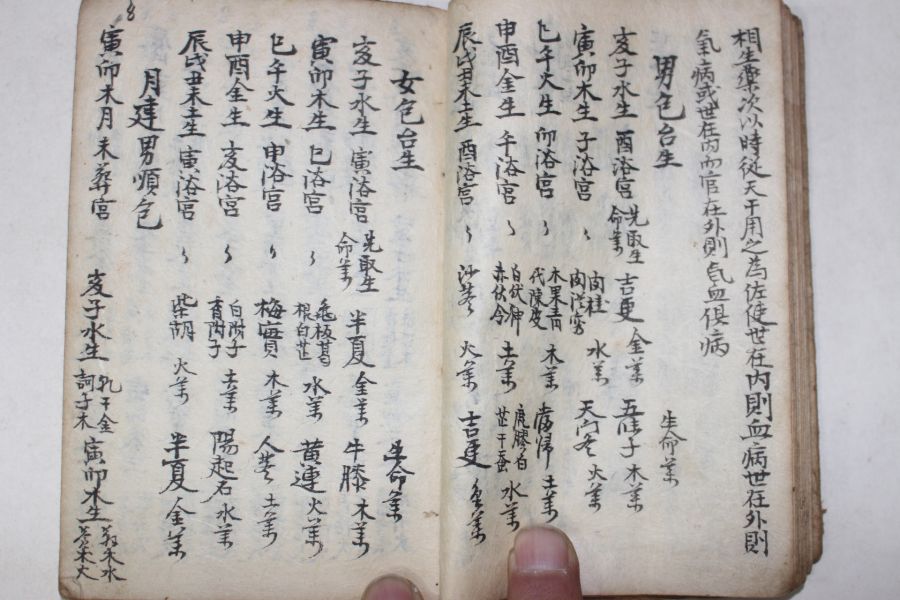 相生藥次以時從天干用之為佐使世在内則血病世在外則
氣病或世在内而官在外則氣血俱病
男包台生 生命薬
亥子水生 酉浴宮 先取生命薬 吉更 金薬 五味子 木薬
寅卯木生 子浴宮 〻 肉桂 水薬 天門冬 火薬
巳午火生 卯浴宮 〻 木果青代陳皮 木薬 當歸 土薬
申酉金生 午浴宮 〻 白伏神赤伏令 土薬 鹿膠白芷干蚕 水薬
辰戌丑未土生 酉浴宮 〻 沙苓 火薬 吉更 金薬
女包台生 生命薬
亥子水生 寅浴宮 先取生命薬 半夏 金薬 牛膝 木薬
寅卯木生 巳浴宮 〻 龜板葛根白芷 水薬 黄連 火薬
巳午火生 申浴宮 〻 梅實 木薬 人 土薬
申酉金生 亥浴宮 〻 白附子 土薬 陽起石 水薬
辰戌丑未土生 寅浴宮 〻 柴胡 火薬 半夏 金薬
月建男順包
寅卯木月 未葬宮 亥子水生 乳干金訶子木 寅卯木生
8